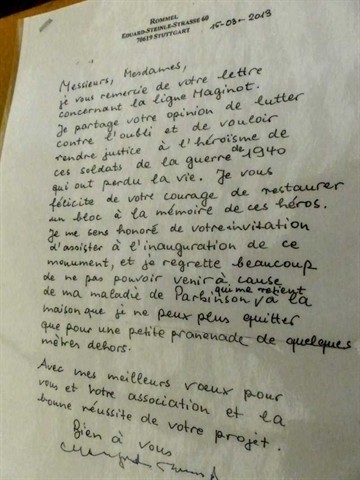 ROMMEL
EDUARD-STEINLE-STRASSE 60
70619 STUTTGART
15-03-2013
Messieurs, Mesdames,
je vous remercie de votre lettre
concernant la ligne Maginot.
Je partage votre opinion de lutter
contre l'oubli et de vouloir
rendre justice à l'héroïsme de
ces soldats de la guerre de 1940
qui ont perdu la vie. Je vous
félicite de votre courage de restaurer
un bloc à la mémoire de ces héros.
Je me sens honoré de votre invitation
d'assister à l'inauguration de ce
monument, et je regrette beaucoup
de ne pas pouvoir venir à cause
de ma maladie de Parkinson qui me retient à la
maison que je ne peux plus quitter
que pour une petite promenade de quelques
mètres dehors.
Avec mes meilleurs vœux pour
vous et votre association et la
bonne réussite de votre projet.
Bien à vous